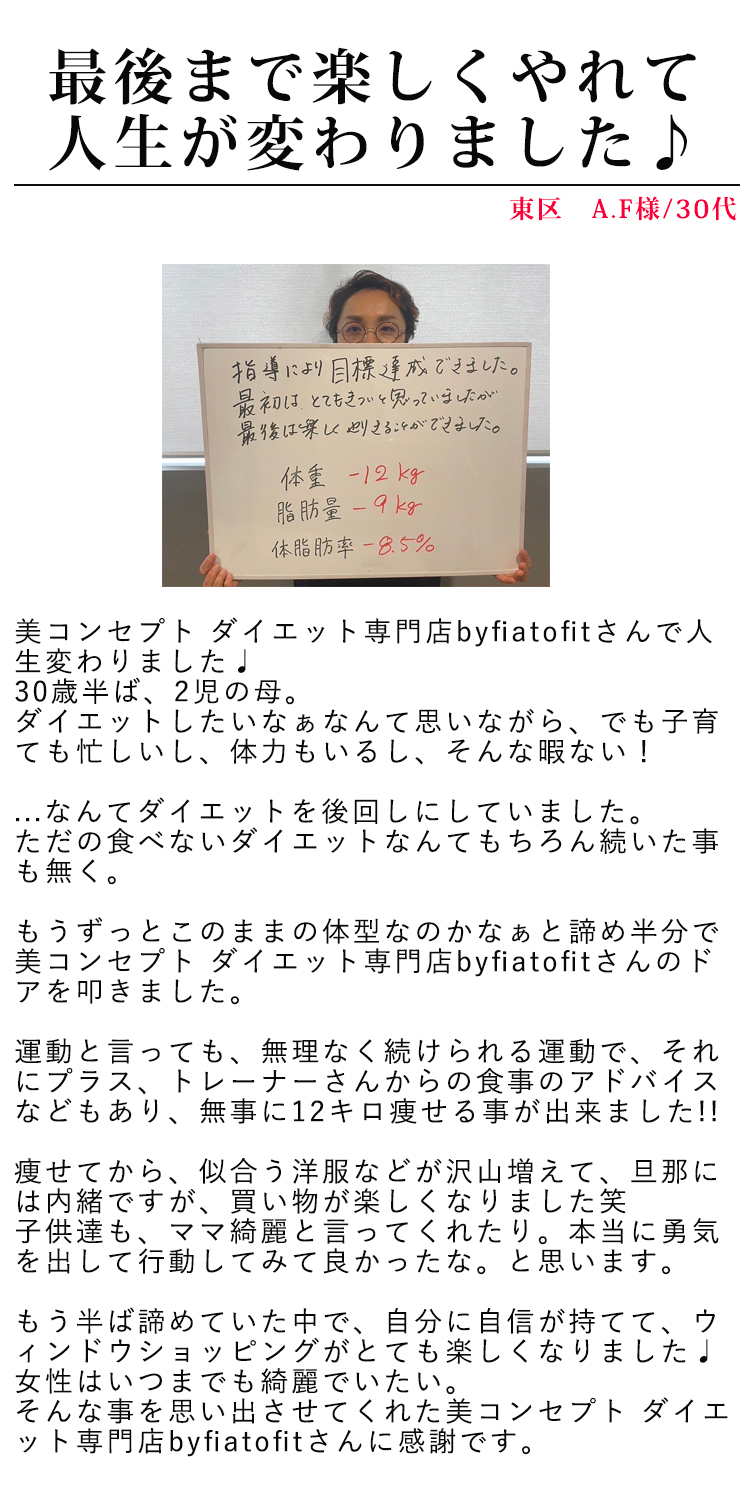 最後まで楽しくやれて
人生が変わりました♪
東区　A.F様/30代
指導により目標達成できました。
最初は、とてもきついと思っていましたが
最後は楽しくやりきることができました。
体重 -12kg
脂肪量 -9kg
体脂肪率 -8.5%
美コンセプト ダイエット専門店byfiatofitさんで人
生変わりました♩
30歳半ば、2児の母。
ダイエットしたいなぁなんて思いながら、でも子育
ても忙しいし、体力もいるし、そんな暇ない！
...なんてダイエットを後回しにしていました。
ただの食べないダイエットなんてもちろん続いた事
も無く。
もうずっとこのままの体型なのかなぁと諦め半分で
美コンセプト ダイエット専門店byfiatofitさんのド
アを叩きました。
運動と言っても、無理なく続けられる運動で、それ
にプラス、トレーナーさんからの食事のアドバイス
などもあり、無事に12キロ痩せる事が出来ました!!
痩せてから、似合う洋服などが沢山増えて、旦那に
は内緒ですが、買い物が楽しくなりました笑
子供達も、ママ綺麗と言ってくれたり。本当に勇気
を出して行動してみて良かったな。と思います。
もう半ば諦めていた中で、自分に自信が持てて、ウ
ィンドウショッピングがとても楽しくなりました♩
女性はいつまでも綺麗でいたい。
そんな事を思い出させてくれた美コンセプト ダイエ
ット専門店byfiatofitさんに感謝です。